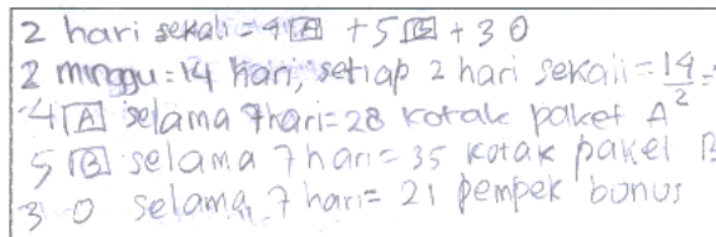 2 hari sekali = 4 [A] + 5 [B] + 3 O
2 minggu = 14 hari, setiap 2 hari sekali = 14/2 =
4 [A] selama 7 hari = 28 kotak paket A
5 [B] selama 7 hari = 35 kotak paket B
3 O selama 7 hari = 21 pempek bonus